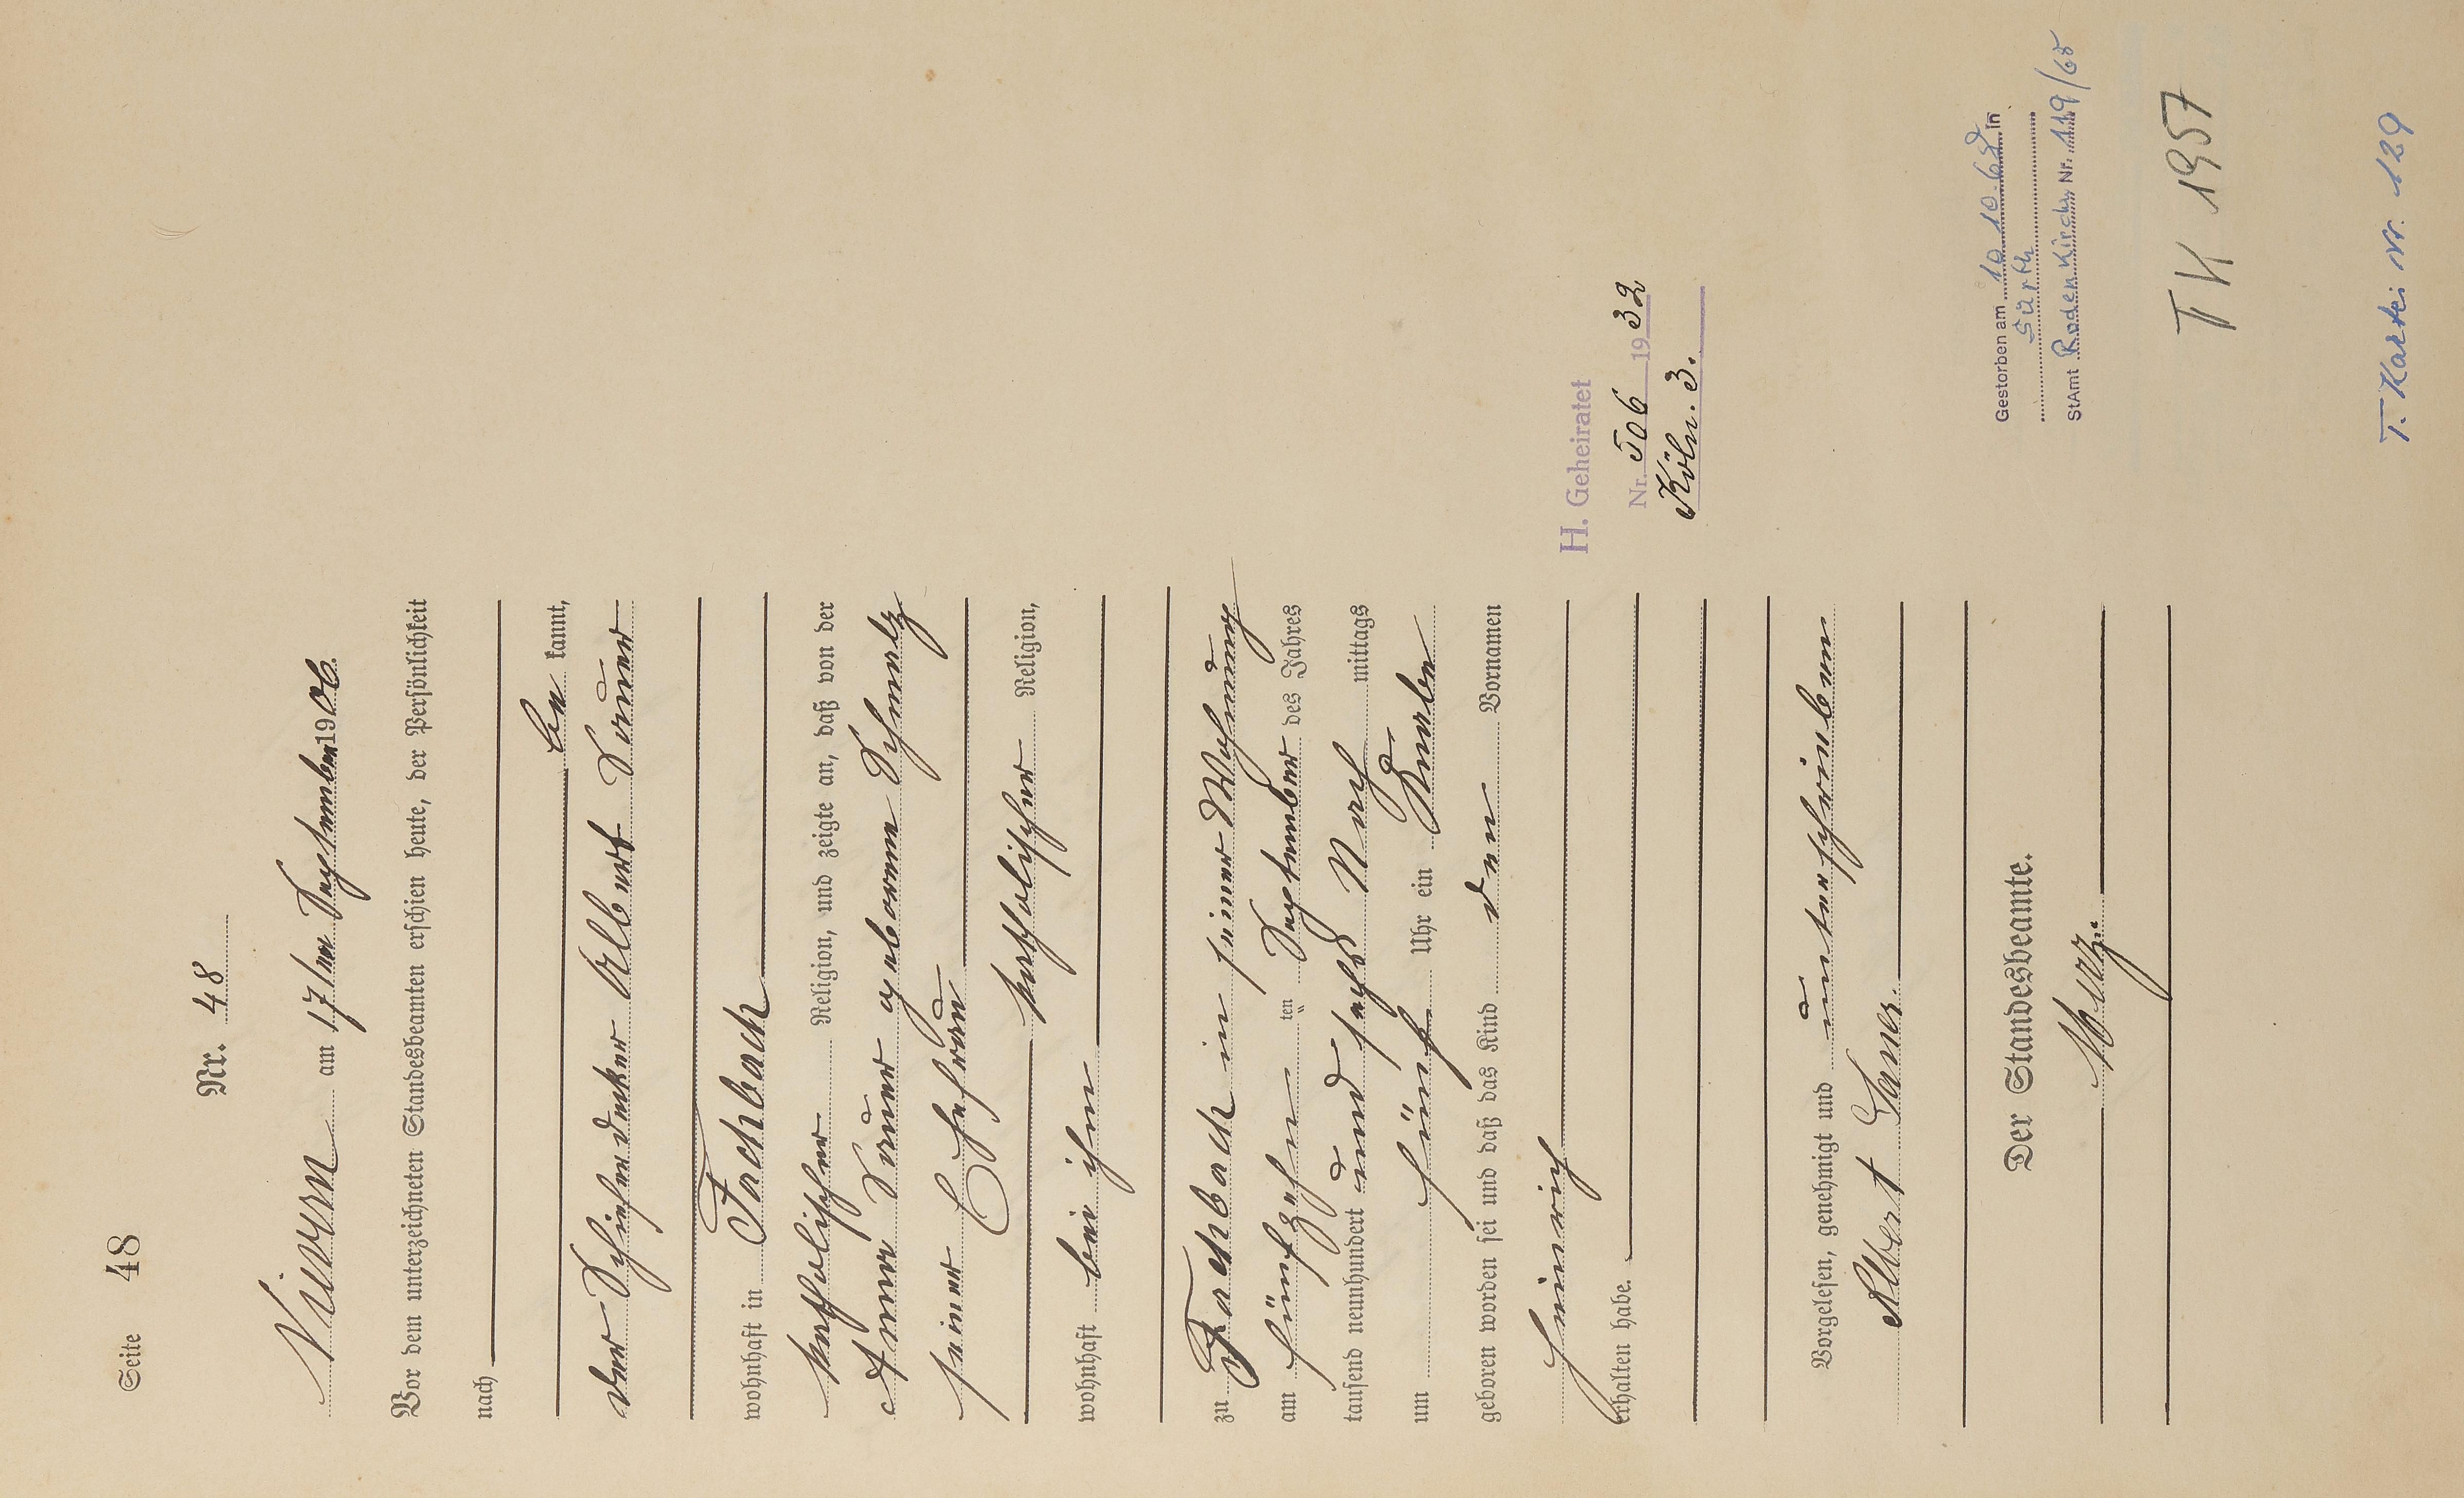 Seite 48
Nr. 48
Nievern am 17ten September 1906.
Vor dem unterzeichneten Standesbeamten erschien heute, der Persönlichkeit
nach
be kannt,
der Schieferdecker Albert Sauer
wohnhaft in Fachbach
katholischer Religion, und zeigte an, daß von der
Anna Sauer geborene Schmalz
seiner Ehefrau
katholischer Religion,
wohnhaft bei ihm
zu Fachbach in seiner Wohnung
am fünfzehn ten September des Jahres
tausend neunhundert und sechs Nach mittags
um fünf Uhr ein Knabe
geboren worden sei und daß das Kind den Vornamen
Heinrich
erhalten habe.
Vorgelesen, genehmigt und unterschrieben
Albert Sauer.
Der Standesbeamte.
H. Geheiratet
Nr. 506 1932
Köln. 3.
Gestorben am 10.10.67 in
Sürth
StAmt Rodenkirchen Nr. 119/68
TK 1957
T. Kartei Nr. 129